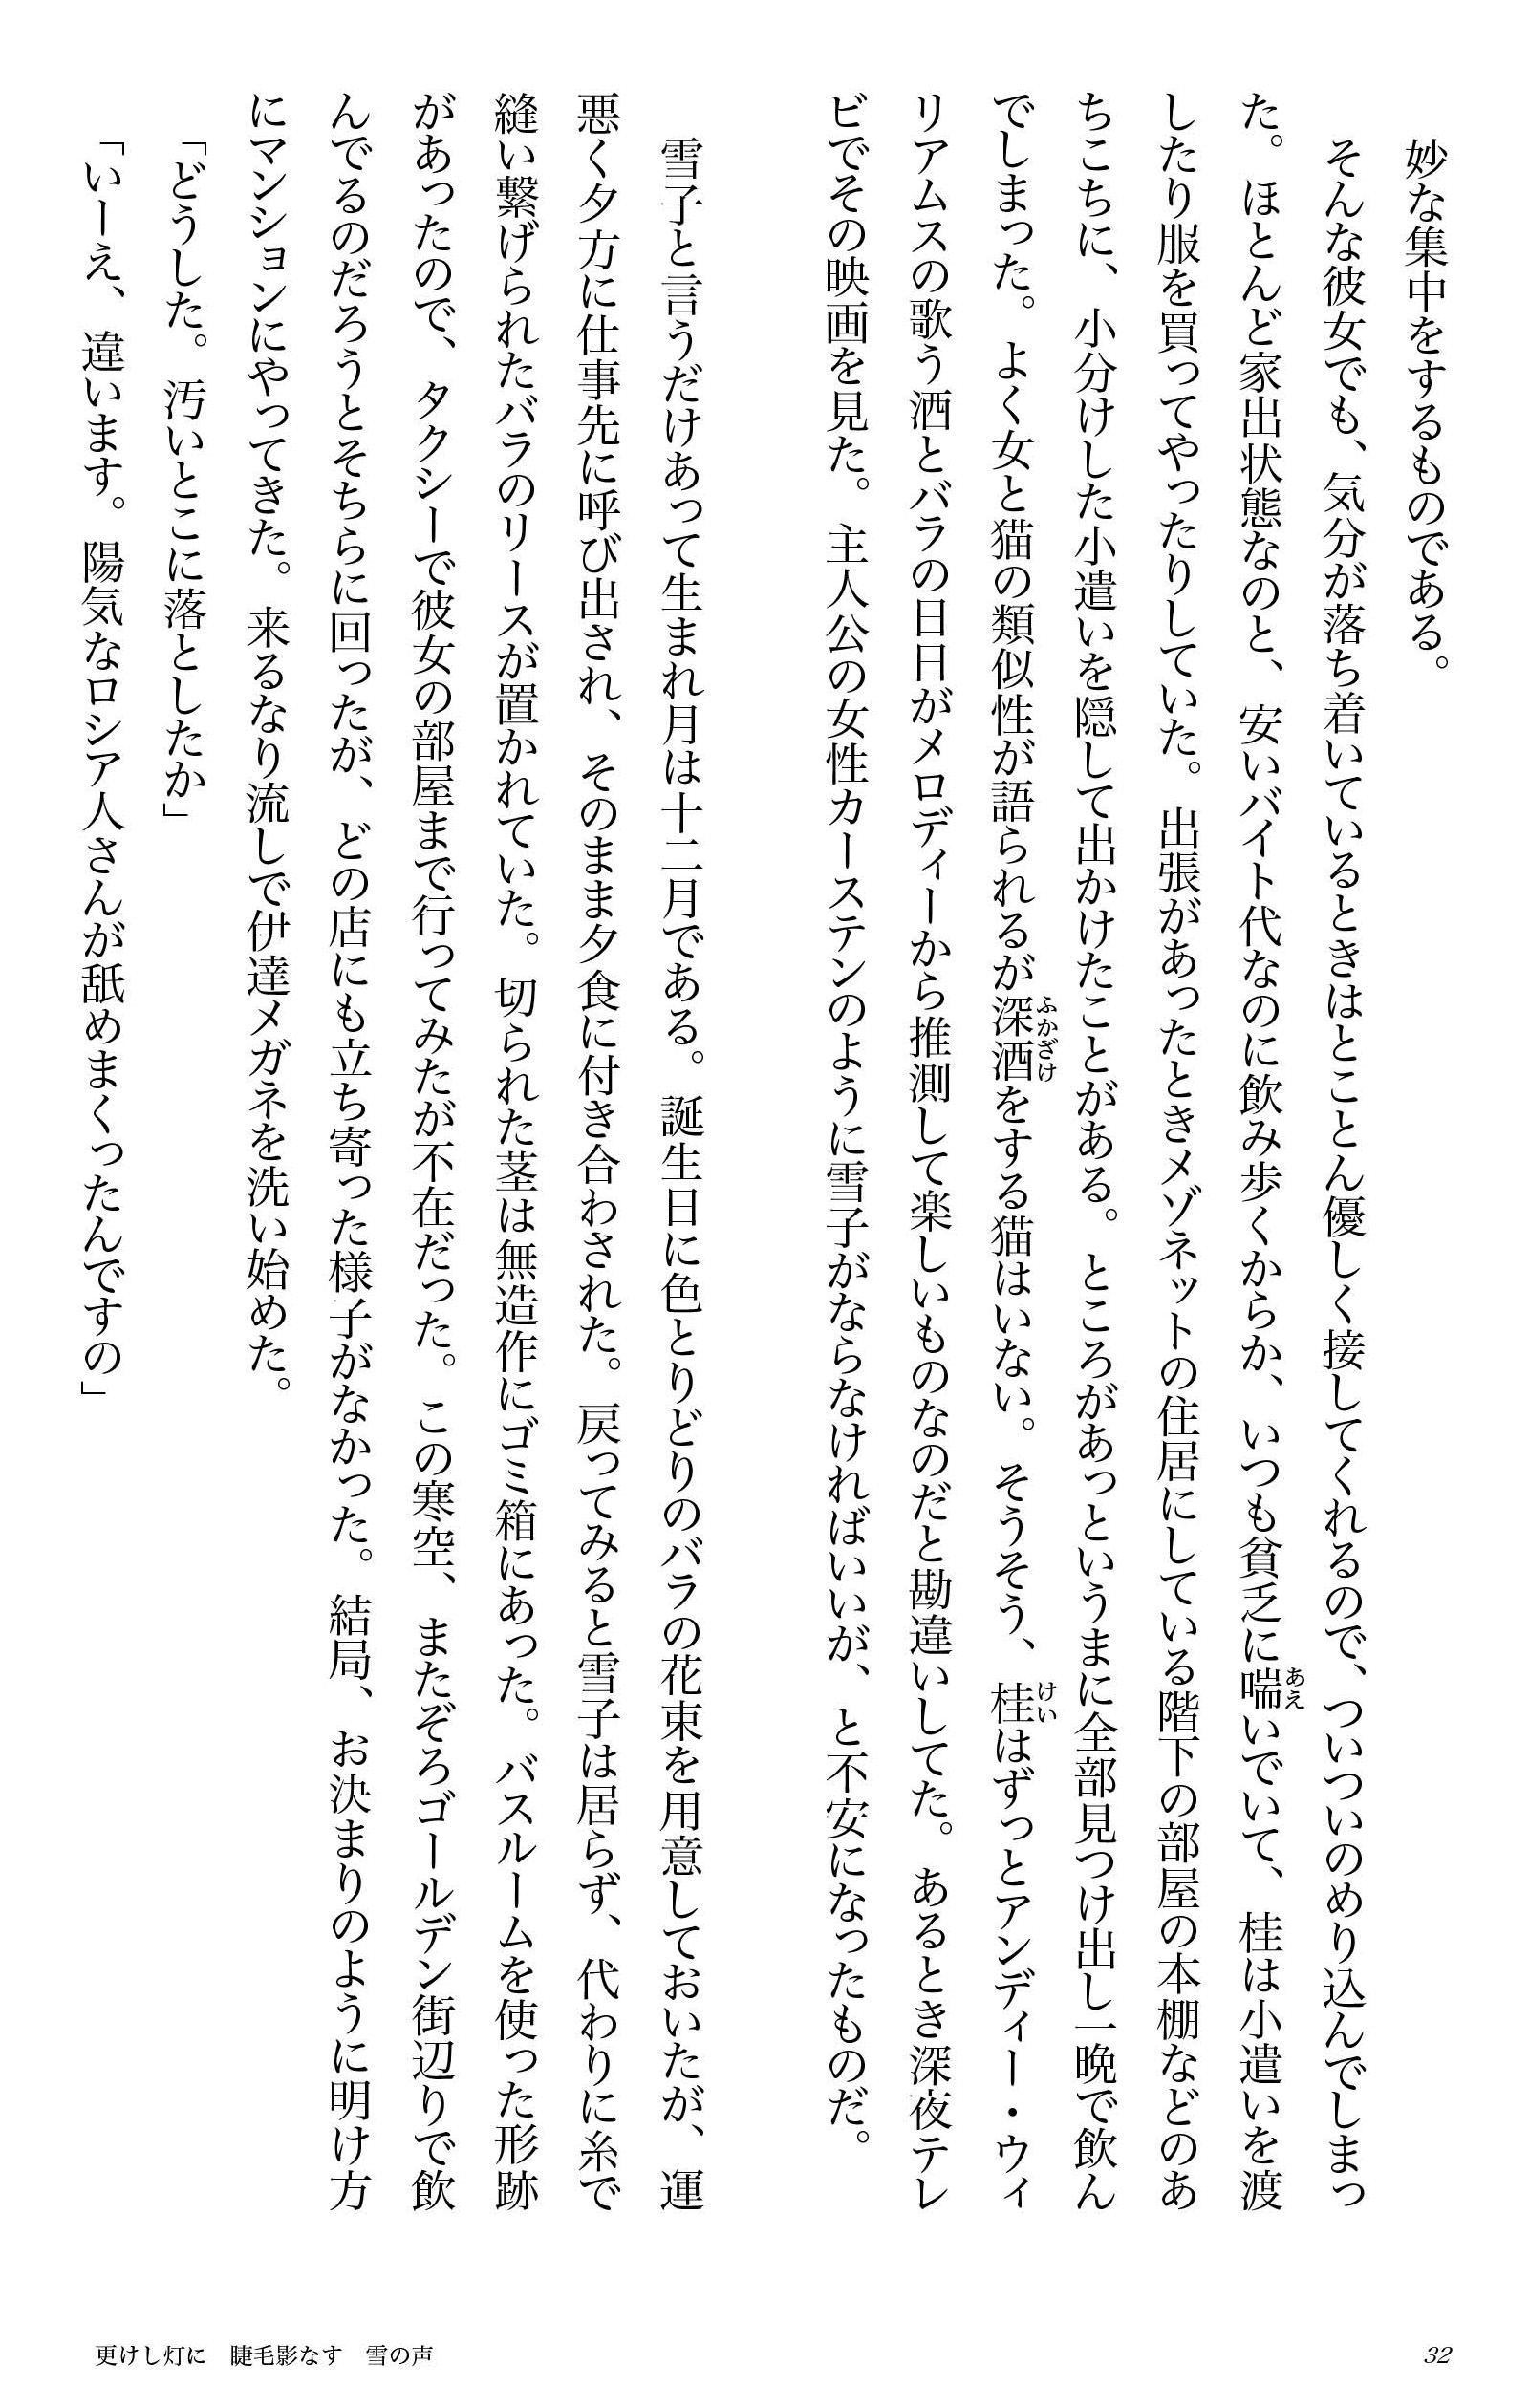 妙な集中をするものである。
そんな彼女でも、気分が落ち着いているときはとことん優しく接してくれるので、ついついのめり込んでしまっ
た。ほとんど家出状態なのと、安いバイト代なのに飲み歩くからか、いつも貧乏に喘いでいて、桂は小遣いを渡
あえ
したり服を買ってやったりしていた。出張があったときメゾネットの住居にしている階下の部屋の本棚などのあ
ちこちに、小分けした小遣いを隠して出かけたことがある。ところがあっというまに全部見つけ出し一晩で飲ん
でしまった。よく女と猫の類似性が語られるが深酒をする猫はいない。そうそう、桂はずっとアンディー・ウィ
ふかざけ
けい
リアムスの歌う酒とバラの日日がメロディーから推測して楽しいものなのだと勘違いしてた。あるとき深夜テレ
ビでその映画を見た。主人公の女性カーステンのように雪子がならなければいいが、と不安になったものだ。
雪子と言うだけあって生まれ月は十二月である。誕生日に色とりどりのバラの花束を用意しておいたが、運
悪く夕方に仕事先に呼び出され、そのまま夕食に付き合わされた。戻ってみると雪子は居らず、代わりに糸で
縫い繋げられたバラのリースが置かれていた。切られた茎は無造作にゴミ箱にあった。バスルームを使った形跡
があったので、タクシーで彼女の部屋まで行ってみたが不在だった。この寒空、またぞろゴールデン街辺りで飲
んでるのだろうとそちらに回ったが、どの店にも立ち寄った様子がなかった。結局、お決まりのように明け方
にマンションにやってきた。来るなり流しで伊達メガネを洗い始めた。
「どうした。汚いとこに落としたか」
「いーえ、違います。陽気なロシア人さんが舐めまくったんですの」
更けし灯に　睫毛影なす　雪の声
32